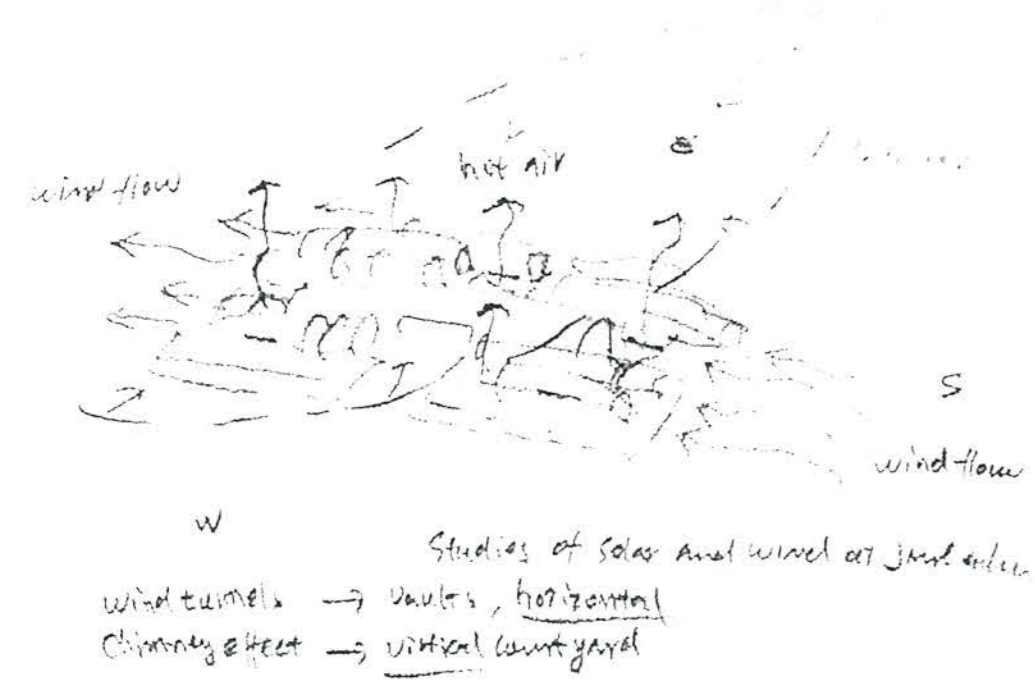 E
hot air
wind flow
S
wind flow
W
Studies of solar and wind at
wind tunnels → vaults, horizontal
Chimney effect → virtical courtyard